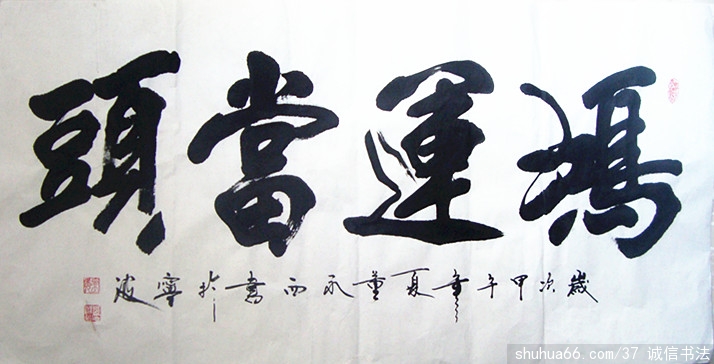 鴻運當頭
歲次甲午年夏董永西書於寧波
shuhua66.com/37 诚信书法